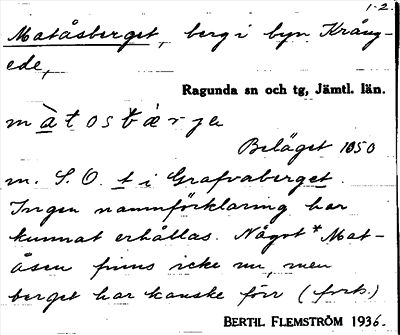 1-2.
Matåsberget, berg i byn Krång-
ede,
Ragunda sn och tg, Jämtl. län.
màtosbærje
Beläget 1050
m. S.O. t i Grafvaberget.
Ingen namnförklaring har
kunnat erhållas. Något *Mat-
åsen finns icke nu, men
berget har kanske förr (forts.)
BERTIL FLEMSTRÖM 1936.